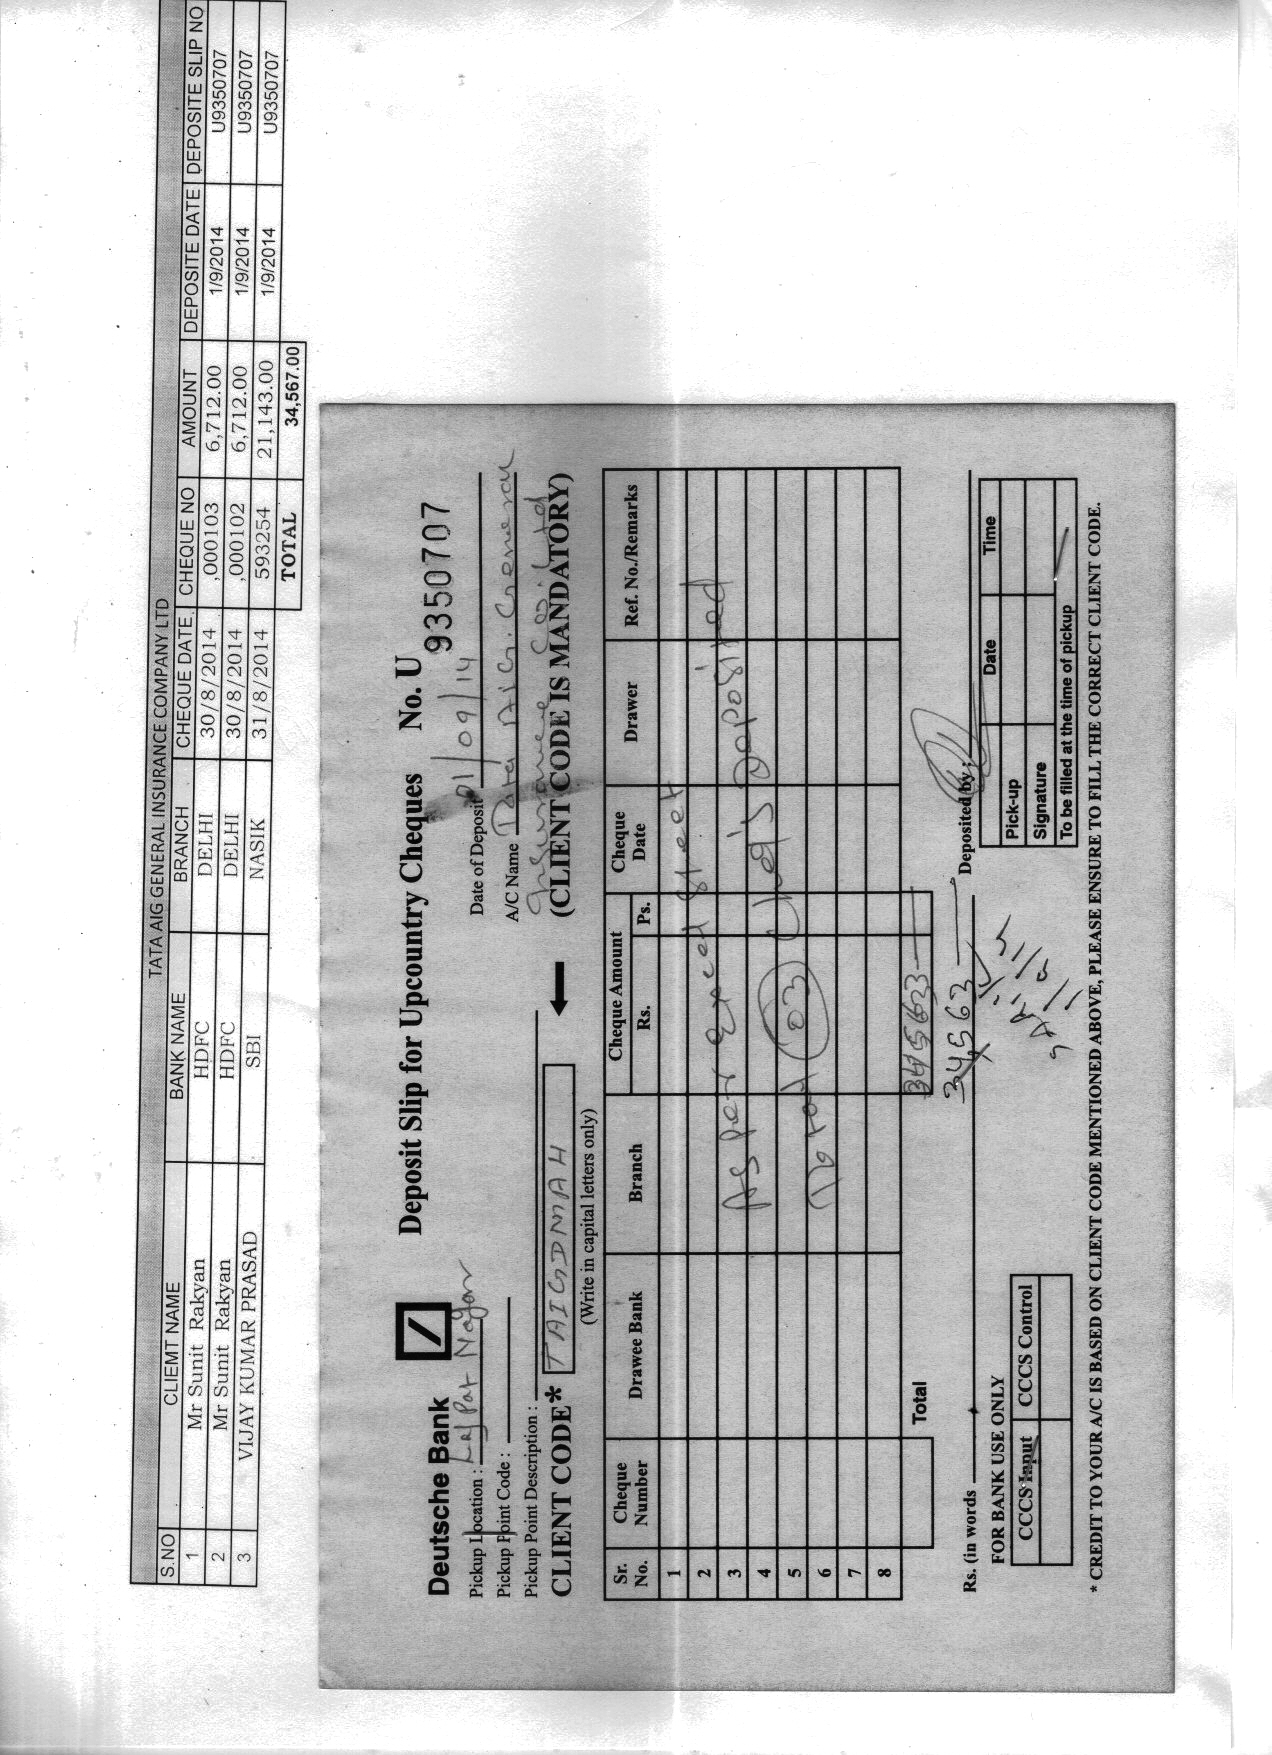 TATA AIG GENERAL INSURANCE COMPANY LTD
S.NO CLIEMT NAME BANK NAME BRANCH CHEQUE DATE. CHEQUE NO AMOUNT DEPOSITE DATE DEPOSITE SLIP NO
1 Mr Sunit Rakyan HDFC DELHI 30/8/2014 ,000103 6,712.00 1/9/2014 U9350707
2 Mr Sunit Rakyan HDFC DELHI 30/8/2014 ,000102 6,712.00 1/9/2014 U9350707
3 VIJAY KUMAR PRASAD SBI NASIK 31/8/2014 593254 21,143.00 1/9/2014 U9350707
TOTAL 34,567.00
Deutsche Bank Deposit Slip for Upcountry Cheques No. U 9350707
Pickup Location : Lajpat Nagar Date of Deposit 01/09/14
Pickup Point Code : A/C Name Tata AIG. General
Pickup Point Description : Insurance Co. Ltd
CLIENT CODE* TAIGDMAH (CLIENT CODE IS MANDATORY)
(Write in capital letters only)
Sr. No. Cheque Number Drawee Bank Branch Cheque Amount Rs. Ps. Cheque Date Drawer Ref. No./Remarks
1
2
3 As per Excel Sheet
4
5
6 Total 03 Chq's Deposited
7
8
Total
Rs. (in words Deposited by :
FOR BANK USE ONLY
CCCS Input CCCS Control
Date Time
Pick-up
Signature
To be filled at the time of pickup
* CREDIT TO YOUR A/C IS BASED ON CLIENT CODE MENTIONED ABOVE, PLEASE ENSURE TO FILL THE CORRECT CLIENT CODE.